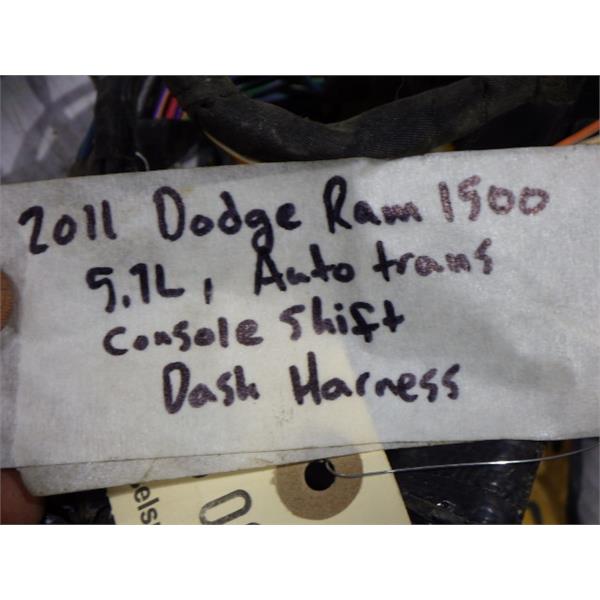 2011 Dodge Ram 1500
5.7L, Auto trans
Console Shift
Dash Harness